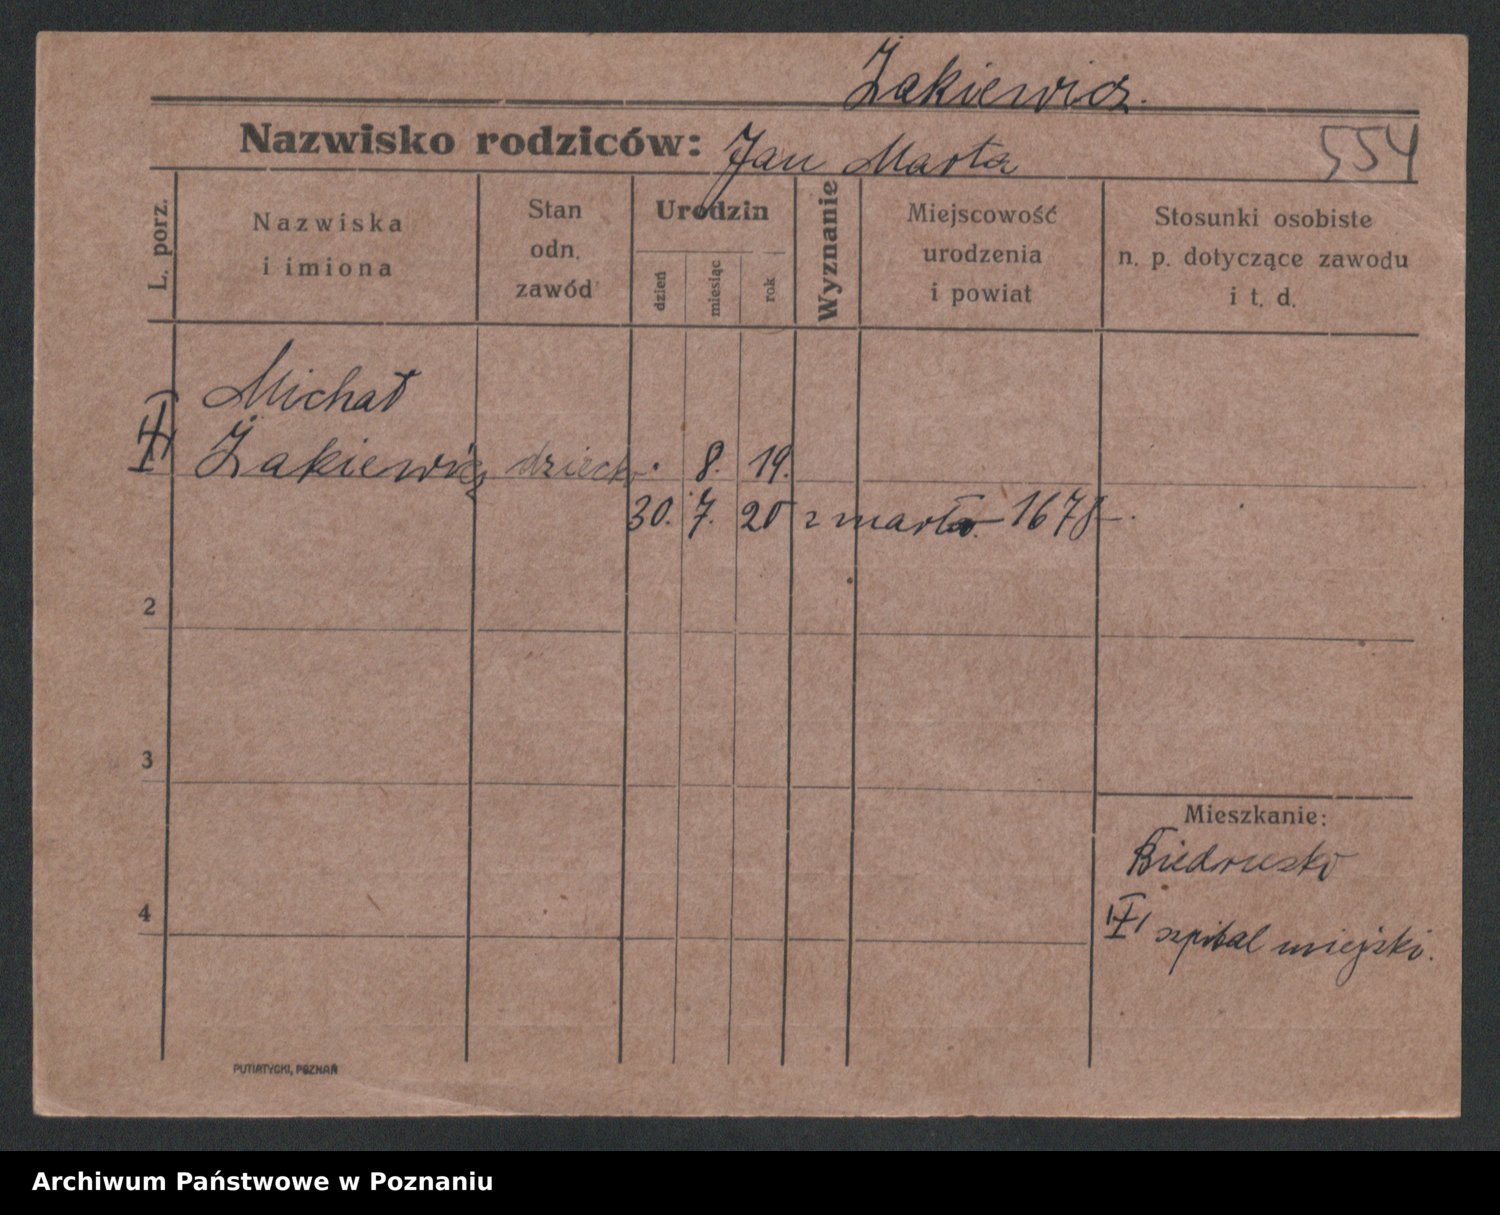 Żakiewicz.
Nazwisko rodziców: Jan Marta
554
L. porz.
Nazwiska
i imiona
Stan
odn.
zawód
Urodzin
dzień
miesiąc
rok
Wyznanie
Miejscowość
urodzenia
i powiat
Stosunki osobiste
n. p. dotyczące zawodu
i t. d.
Michał
Żakiewicz dziecko. 8. 19.
30. 7. 20 zmarło. 1678
2
3
4
Mieszkanie:
Biedrusko
szpital miejski.
PUTIATYCKI, POZNAŃ
Archiwum Państwowe w Poznaniu